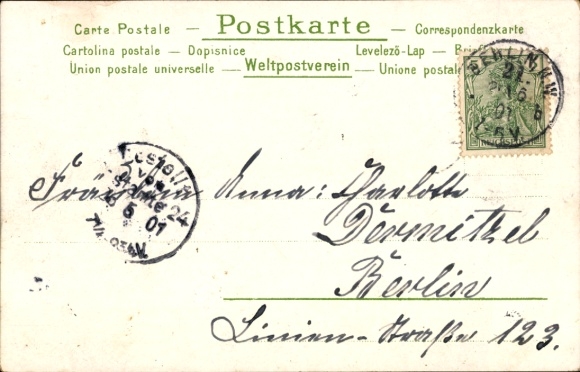 Carte Postale — Postkarte — Correspondenzkarte
Cartolina postale — Dopisnice Levelező-Lap —
Union postale universelle — Weltpostverein — Unione postale
BERLIN N.W.
Fräulein Anna: Charlotte
Dermitzel
Berlin
Linien-Straße 123.